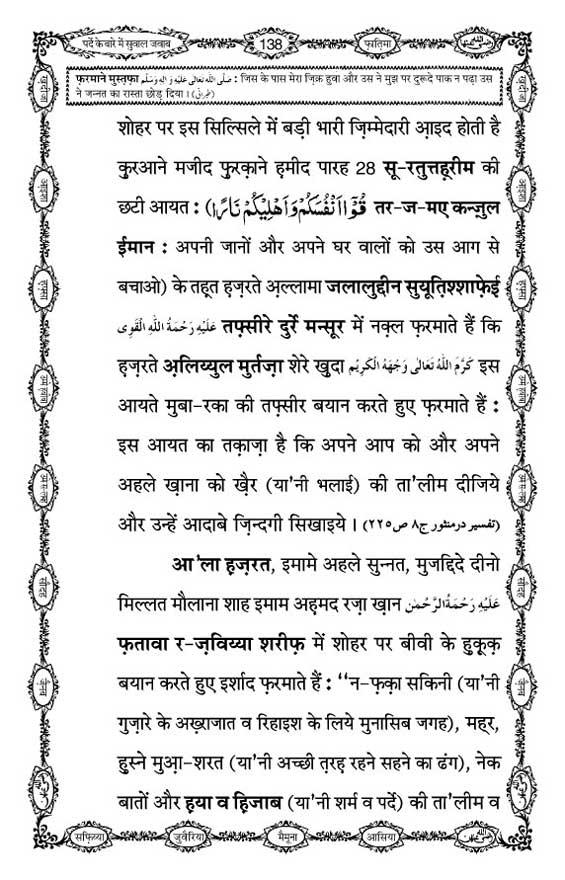 पर्दे के बारे में सुवाल जवाब
138
फ़ातिमा
फ़रमाने मुस्तफ़ा صلى الله تعالى عليه واله وسلم : जिस के पास मेरा ज़िक्र हुवा और उस ने मुझ पर दुरूदे पाक न पढ़ा उस
ने जन्नत का रास्ता छोड़ दिया। (طبرانی)
शोहर पर इस सिल्सिले में बड़ी भारी ज़िम्मेदारी आ़इद होती है
कुरआने मजीद फुरक़ाने हमीद पारह 28 सू-रतुत्तह़रीम की
छटी आयत : قُوْۤا اَنْفُسَكُمْ وَ اَهْلِیْكُمْ نَارًا (तर-ज-मए कन्ज़ुल
ईमान : अपनी जानों और अपने घर वालों को उस आग से
बचाओ) के तह़्त ह़ज़रते अ़ल्लामा जलालुद्दीन सुयूति़श्शाफ़ेई
عَلَیْهِ رَحْمَةُ اللّٰهِ الْقَوِی तफ़्सीरे दुर्रे मन्सूर में नक़्ल फ़रमाते हैं कि
ह़ज़रते अ़लिय्युल मुर्तज़ा शेरे खुदा كَرَّمَ اللّٰهُ تَعَالٰی وَجْهَهُ الْكَرِیْم इस
आयते मुबा-रका की तफ़्सीर बयान करते हुए फ़रमाते हैं :
इस आयत का तक़ाज़ा है कि अपने आप को और अपने
अहले ख़ाना को ख़ैर (या'नी भलाई) की ता'लीम दीजिये
और उन्हें आदाबे ज़िन्दगी सिखाइये। (تفسیر درمنثور ج۸ ص۲۲۵)
आ'ला ह़ज़रत, इमामे अहले सुन्नत, मुजद्दिदे दीनो
मिल्लत मौलाना शाह इमाम अह़मद रज़ा ख़ान عَلَیْهِ رَحْمَةُ الرَّحْمٰن
फ़तावा र-ज़विय्या शरीफ़ में शोहर पर बीवी के हुक़ूक़
बयान करते हुए इर्शाद फ़रमाते हैं : ‘‘न-फ़क़ा सकिनी (या'नी
गुज़ारे के अख़्राजात व रिहाइश के लिये मुनासिब जगह), महर,
हुस्ने मुआ़-शरत (या'नी अच्छी त़रह़ रहने सहने का ढंग), नेक
बातों और ह़या व ह़िजाब (या'नी शर्म व पर्दे) की ता'लीम व
सफ़िय्या
जुवैरिया
मैमूना
आसिया